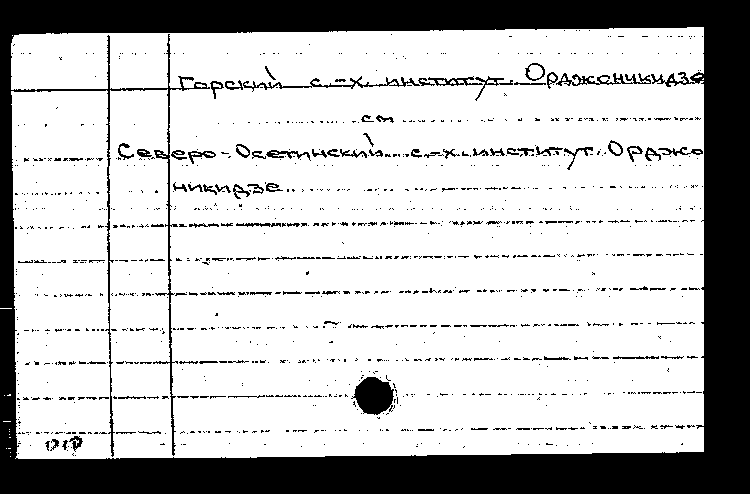 Горский с.-х. институт. Орджоникидзе
см
Северо-Осетинский с.-х. институт. Орджо
никидзе